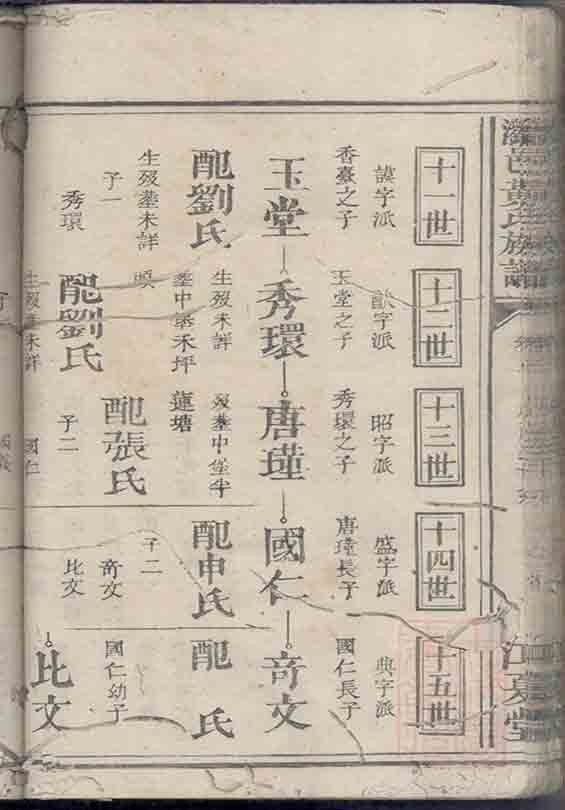 黃氏族譜
江夏堂
十一世
謨字派
香臺之子
玉堂
配劉氏
生殁塟未詳
子一
秀環
十二世
猷字派
玉堂之子
秀環
生殁未詳
塟中堡禾坪
配劉氏
生殁塟未詳
十三世
昭字派
秀環之子
唐瑾
殁塟中堡半
蓮塘
配張氏
子二
國仁
十四世
盛字派
唐瑾長子
國仁
配申氏
子二
奇文
比文
十五世
典字派
國仁長子
奇文
配 氏
國仁幼子
比文